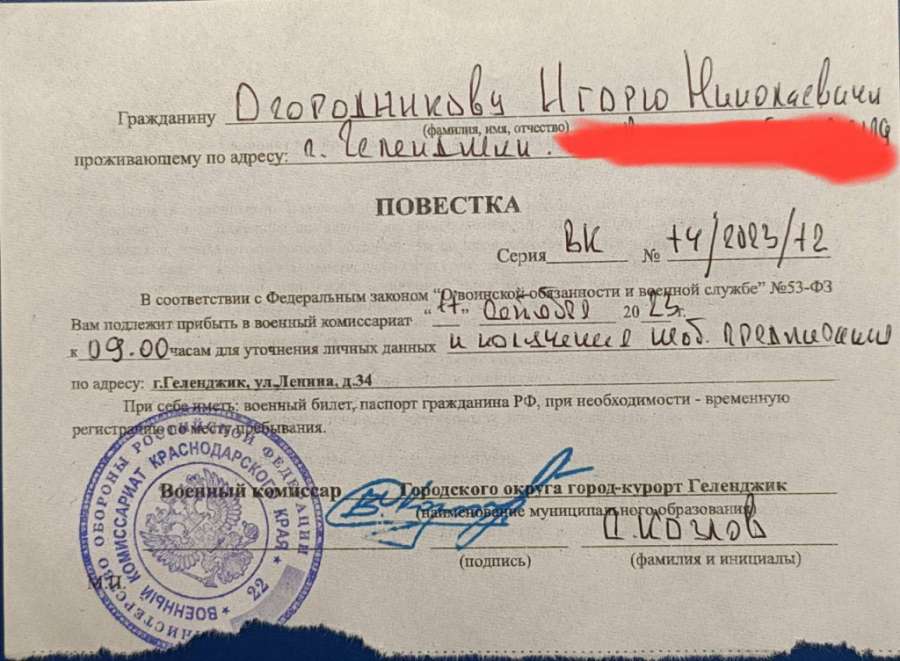 Гражданину Огородникову Игорю Николаевичу
(фамилия, имя, отчество)
проживающему по адресу: г. Геленджик.
ПОВЕСТКА
Серия ВК № 74/2023/12
В соответствии с Федеральным законом “О воинской обязанности и военной службе” №53-ФЗ
Вам подлежит прибыть в военный комиссариат “17” октября 2023г.
к 09.00 часам для уточнения личных данных и получения моб. предписания
по адресу: г.Геленджик, ул.Ленина, д.34
При себе иметь: военный билет, паспорт гражданина РФ, при необходимости - временную
регистрацию по месту пребывания.
Военный комиссар Городского округа город-курорт Геленджик
(наименование муниципального образования)
Козлов
(подпись) (фамилия и инициалы)
М.П.
МИНИСТЕРСТВО ОБОРОНЫ РОССИЙСКОЙ ФЕДЕРАЦИИ
ВОЕННЫЙ КОМИССАРИАТ КРАСНОДАРСКОГО КРАЯ
22